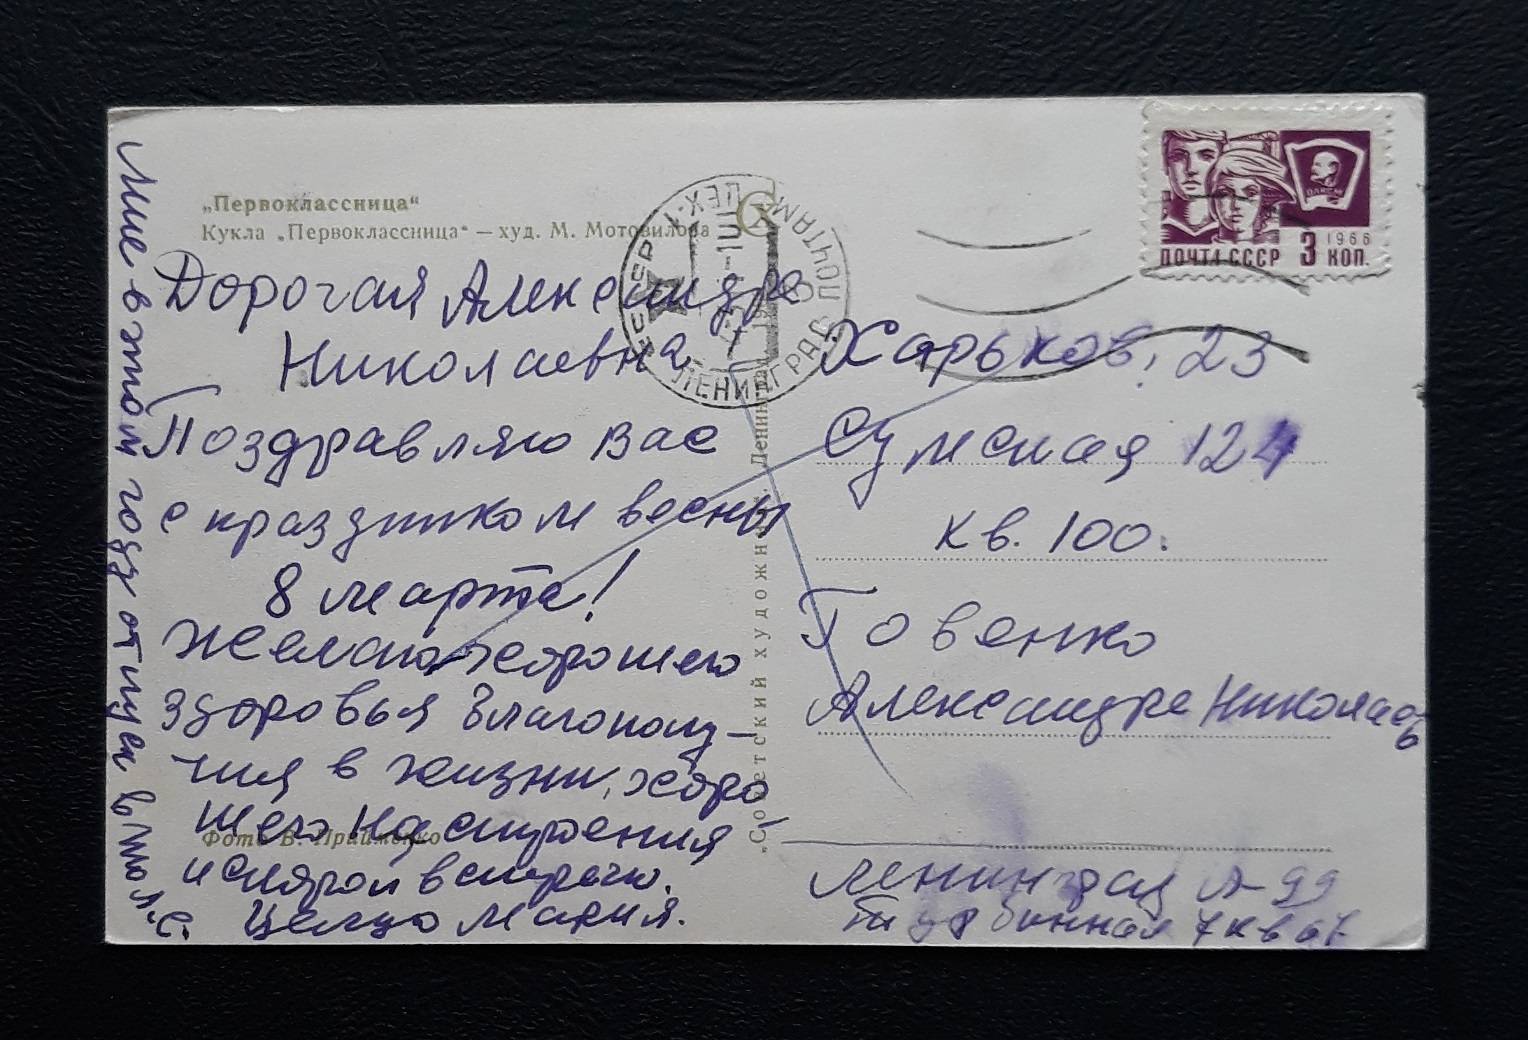 „Первоклассница“
Кукла „Первоклассница“ — худ. М. Мотовилова
Дорогая Александра
Николаевна
Поздравляю Вас
с праздником весны
8 марта!
Желаю хорошего
здоровья благополу-
чия в жизни, хоро
шего настроения
и скорой встречи.
Целую Мария.
Мне в этом году отпуск в
Фото В. Прайменко
„Советский художник“. Ленинград. 19
СССР
ЛЕНИНГРАД ПОЧТАМТ
ЦЕХ
ПОЧТА СССР 3 КОП.
1966
ВЛКСМ
Харьков, 23
Сумская 124
кв. 100.
Говенко
Александре Николаев
Ленинград Л-99
Турбинная 7 кв 67